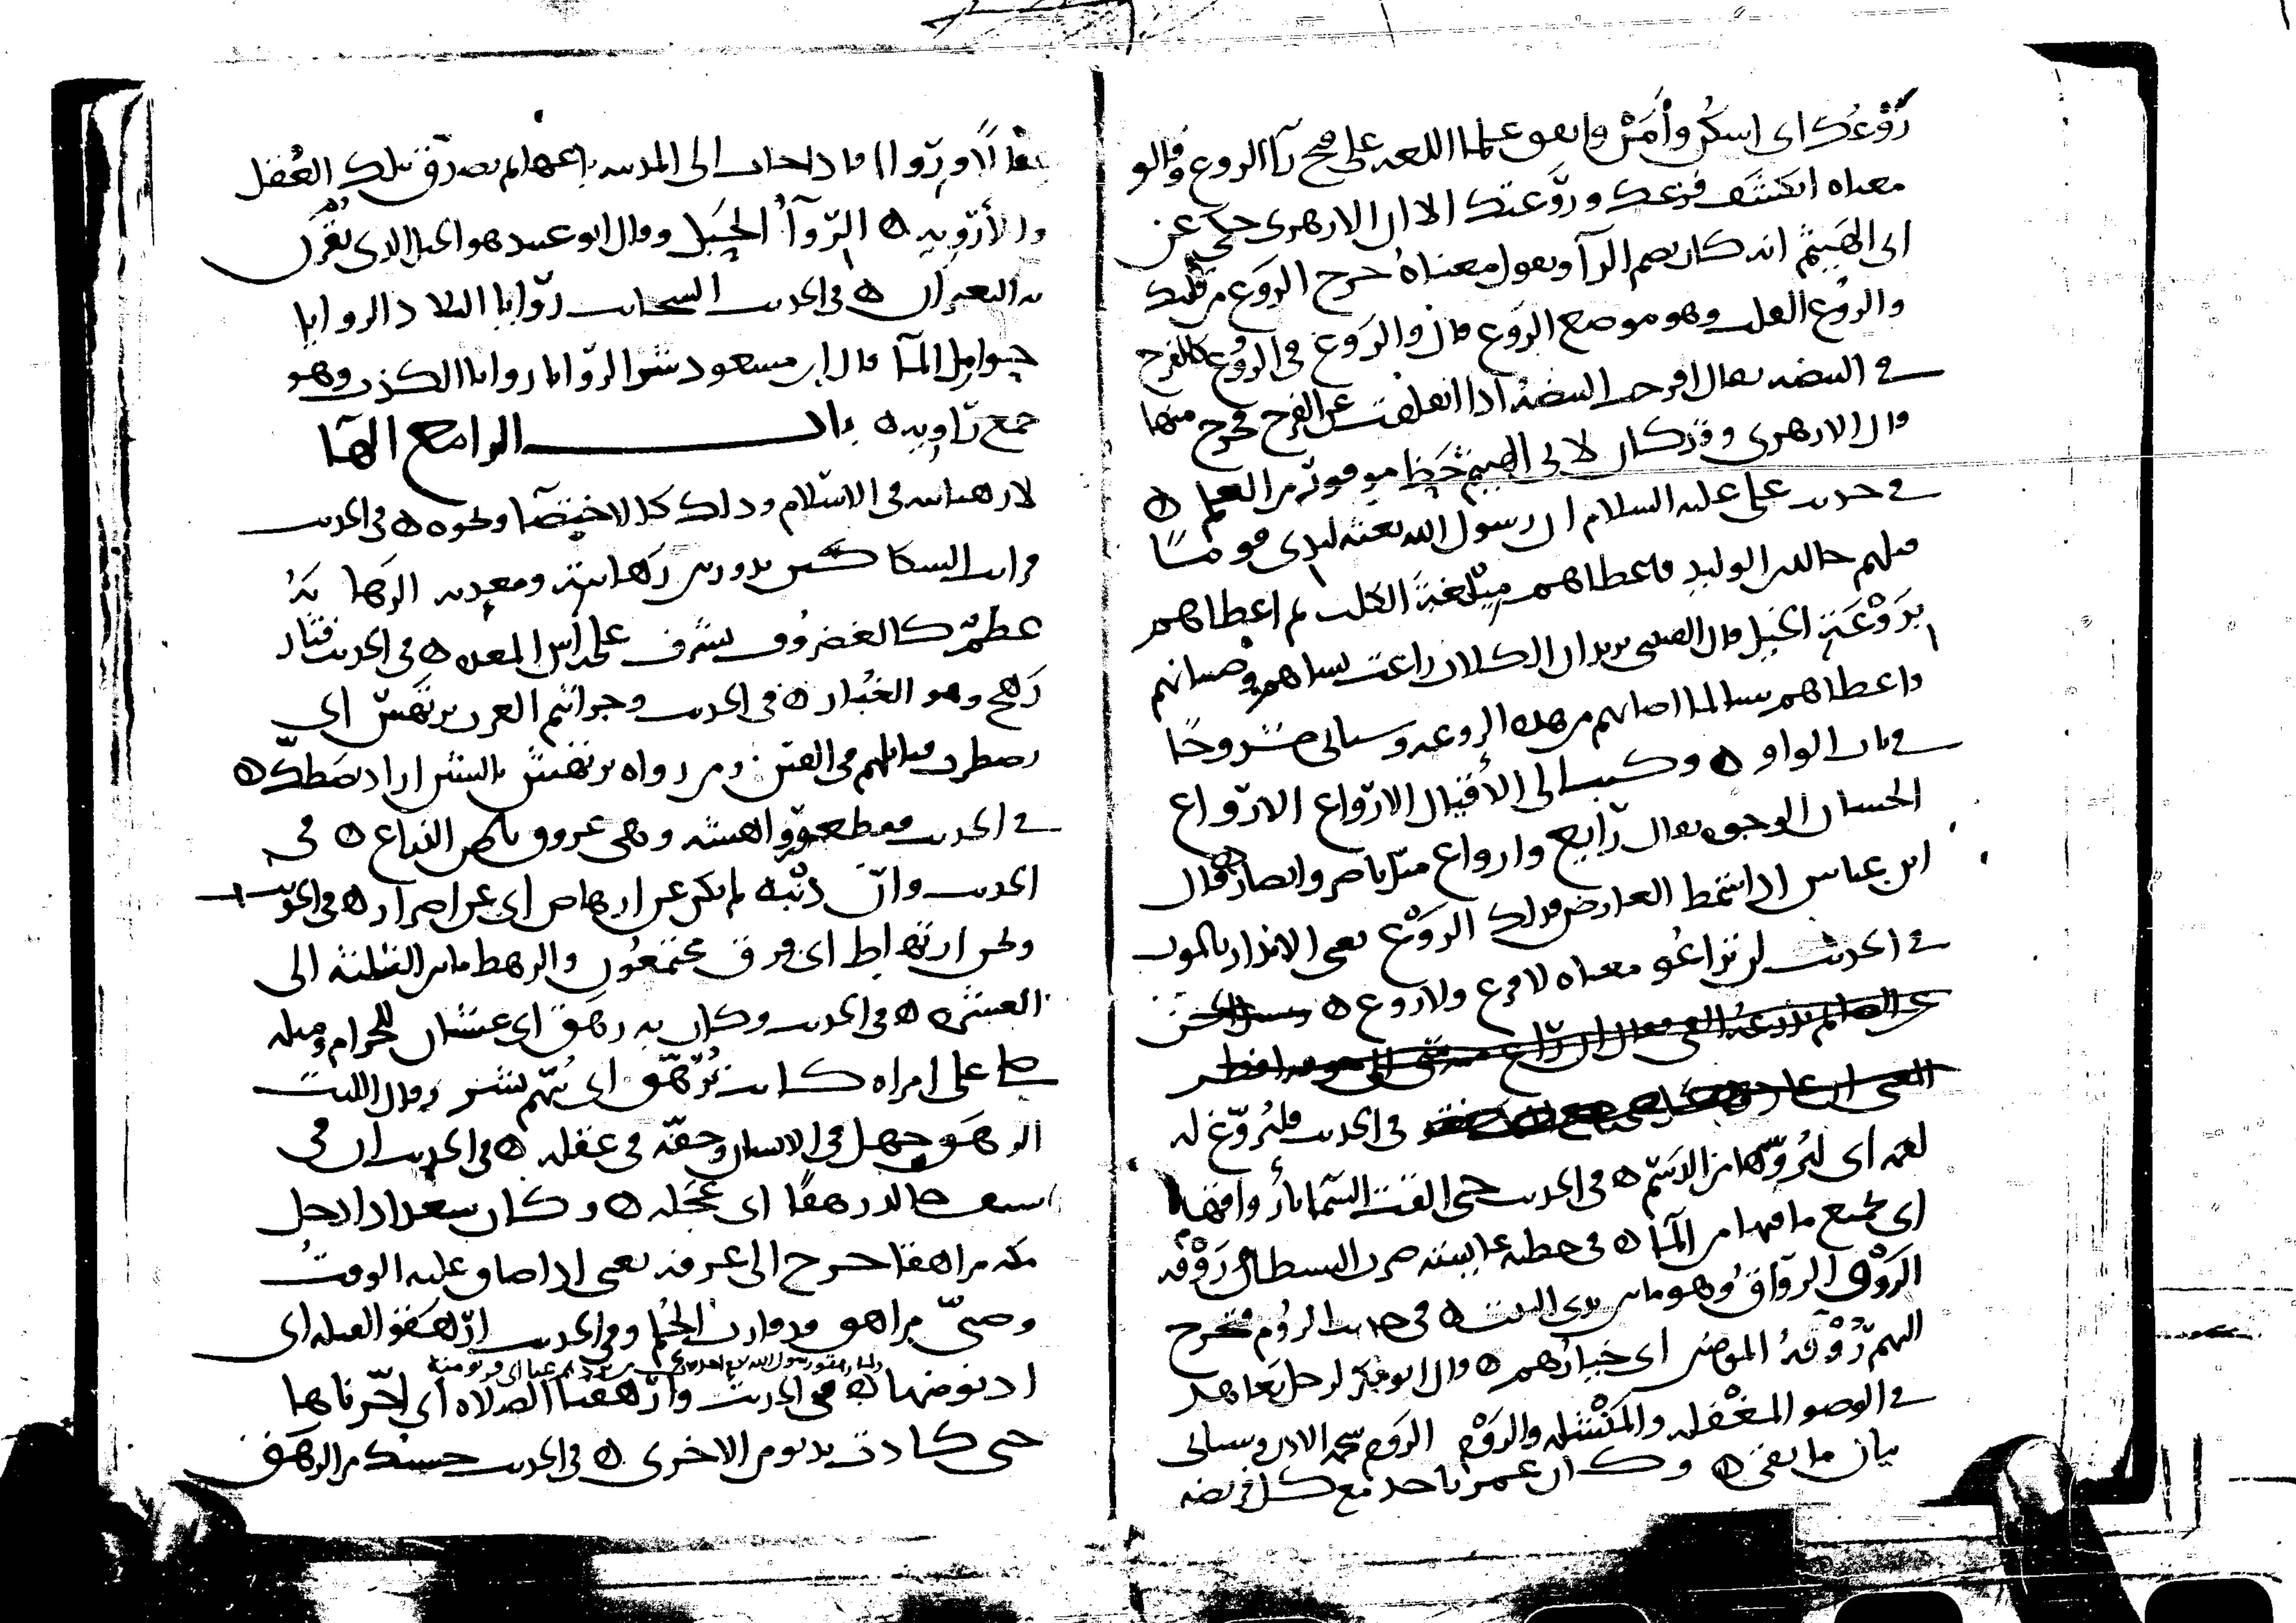 رَوْعُك اى اسكُن وأْمَنْ واتفق علما اللغه على فتح رآ الروع وقالو
معناه انكشَفَ فزعك ورَوْعتك الا ان الازهرى حكى عن
ابى الهَيْثم انه كان يضم الرآ ويقول معناهُ خرج الرَوَع من قلبك
والرُوْع القلب وهو موضع الرَوْع قال والرَوْع فى الرُوْع كالفرخ
فى البيضه يقال افرخت البيضهُ اذا انفلقت عن الفرخ فخرج منها
قال الازهرى وقد كان لابى الهيثم حَظ موفورٌ من العلم ه
فى حديث على عليه السلام ان رسول الله بعثه ليدى قومًا
قتلهم خالد بن الوليد فاعطاهم مِيْلَغَةَ الكلب ثم اعطاهم
برَوْعَةِ الخيل قال القتيبى يريد ان الخيل راعت نساهم وصبيانهم
واعطاهم شيا لما اصابهم من هذه الروعه وسياتى مشروحًا
فى باب الواو ه وكتب الى الأَقيَال الارْوَاع الارْوَاع
الحسان الوجوه يقال رَايع وارواع مثل ناصر وانصار ه قال
ابن عباس اذا شمط العارض فذلك الرَوْع يعنى الانذار بالموت
فى الحديث لن تراعُو معناه لا فزع ولا روع ه
فى الحديث فليُروّغ له
لقمه اى ليُروّها من الدَسَم ه فى الحديث حتى القت السَما بأَرواقها
اى بجميع ما فيها من المآ ه فى خطبة عايشه ضرب الشيطان رَوْقه
الرَوْق الرِوَاقُ وهو ما بين يدى البيت ه فى حديث الرُوم فيخرج
اليهم رُوْقَهُ المومنين اى خيارُهم ه قال ابو بكر لرجل تعاهد
فى الوضو المَغْفله والمَنْشله والرَوْم الرَوم شحمه الاذن وسياتى
بيان ما بقى ه وكان عمر ياخد مع كل فريضه
عقالًا ورِوَا فاذا جات الى المدينه باعها ثم تصدق بتلك العُقل
والأَرْوِيه ه الرِوآُ الحَبْل وقال ابو عبيد هو الحبل الذى يُقْرَن
به البعيران ه فى الحديث السحاب رَوَايا البلاد الروايا
حوامل المآ قال ابن مسعود شر الروايا روايا الكذب وهو
جمع رَاويه ه باب الرا مع الهآ
لا رهبانيه فى الاسلام وذلك كالاختصآ ونحوه ه فى الحديث
فرايت السكاكين تدور بين رَهابته ومعدته الرَهابَهُ
عظمٌ كالغضرُوف يشرف على راس المعده ه فى الحديث فثار
رَهَج وهو الغُبار ه فى الحديث وجراثيم العرب ترتَهس اى
تضطرب قبايلهم فى الفتن ومن رواه ترتهش بالشين اراد تصطَكّ ه
فى الحديث فقطعو رواهشه وهى عروق باطن الذراع ه فى
الحديث وانّ ذَنْبَهُ لم يكن عن ارهاص اى عن اصرار ه فى الحديث
ونحن ارتهاط اى فرق مجتمعُون والرهط ما بين الثلثه الى
العشره ه فى الحديث وكان به رَهَق اى غشيان للمحرام ومثله
صلى على امراه كانت تُرَهَّق اى تُتهم بشر وقال الليث
الرهَق جهل فى الانسان وخفّه فى عقله ه فى الحديث ان فى
سيف خالد رهقًا اى عَجَله ه وكان سعد اذا دخل
مكه مراهقا خرج الى عرفه يعنى اذا ضاق عليه الوقتُ
وصبىّ مراهق قد قارب الحُلم وفى الحديث ارْهَقو القبله اى
ادنو منها ه فى الحديث وارْهقنا الصلاه اى اخّرناها
حتى كادت تدنو من الاخرى ه فى الحديث حسبك من الرهَق